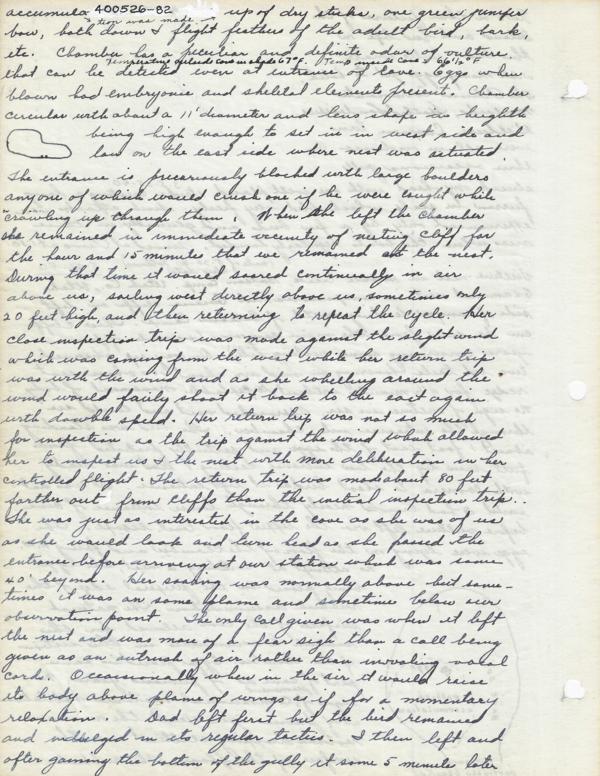 accumula 400526-82 up of dry sticks, one green juniper
tion was made
bow, both down & flight feathers of the adult bird, bark,
etc. Chamber has a peculiar and definite odor of vulture
Temperature outside cave in shade 67°F. Temp inside cave is 66½°F
that can be detected even at entrance of cave. Eggs when
blown had embryonic and skeletal elements present. Chamber
circular with about a 11' diameter and lens shape in heighth
being high enough to set in in west side and
low on the east side where nest was situated.
The entrance is precariously blocked with large boulders
anyone of which would crush one if he were caught while
crawling up through them. When she left the chamber
she remained in immediate vicinity of nesting cliff for
the hour and 15 minutes that we remained at the nest.
During that time it would soared continually in air
above us, sailing west directly above us, sometimes only
20 feet high, and then returning to repeat the cycle. Her
close inspection trip was made against the slight wind
which was coming from the west while her return trip
was with the wind and as she wheeling around the
wind would fairly shoot it back to the east again
with double speed. Her return trip was not so much
for inspection as the trip against the wind which allowed
her to inspect us & the nest with more deliberation in her
controlled flight. The return trip was made about 80 feet
farther out from cliffs than the initial inspection trip..
She was just as interested in the cave as she was of us
as she would look and turn head as she passed the
entrance before arriving at our station which was some
40' beyond. Her soaring was normally above but some-
times it was on same plane and sometime below our
observation point. The only call given was when it left
the nest and was more of a fear sigh than a call being
given as an outrush of air rather than involving vocal
cords. Occassionally when in the air it would raise
its body above plane of wings as if for a momentary
relaxation. Dad left first but the bird remained
and indulged in its regular tactics. I then left and
after gaining the bottom of the gully it some 5 minute later